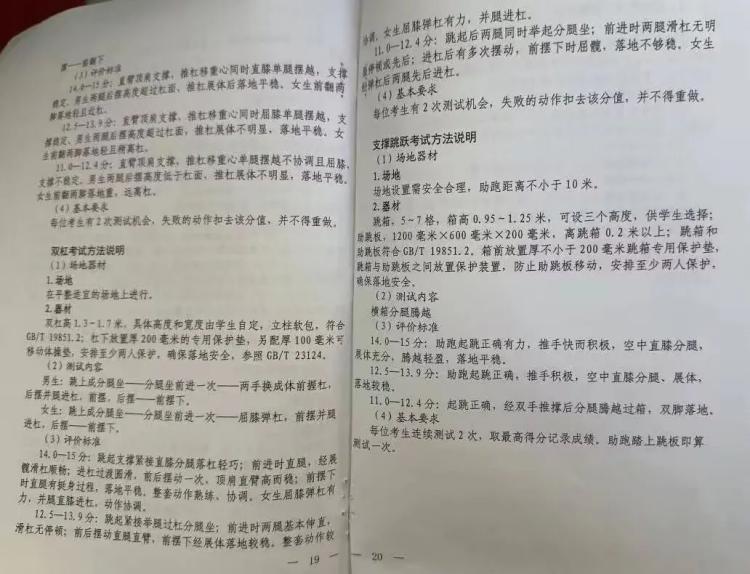 撑——前翻下
（3）评价标准
14.0—15分：直臂顶肩支撑，推杠移重心同时直膝单腿摆越，支撑
稳定，男生两腿后摆高度超过杠面，推杠展体后落地平稳。女生前翻两
脚落地轻且近杠。
12.5—13.9分：直臂顶肩支撑，推杠移重心同时屈膝单腿摆越，支
撑稳定，男生两腿后摆高度至杠面，推杠展体不明显，落地平稳。女
生前翻两脚落地轻且稍离杠。
11.0—12.4分：直臂顶肩支撑，推杠移重心单腿摆越不协调且屈膝，
支撑不稳定。男生两腿后摆高度低于杠面，推杠展体不明显，落地平稳。
女生前翻两脚落地重，远离杠。
（4）基本要求
每位考生有2次测试机会，失败的动作扣去该分值，并不得重做。
双杠考试方法说明
（1）场地器材
1.场地
在平整适宜的场地上进行。
2.器材
双杠高1.3~1.7米，具体高度和宽度由学生自定，立柱软包，符合
GB/T 19851.2；杠下放置厚200毫米的专用保护垫，另配厚100毫米可
移动体操垫，安排至少两人保护，确保落地安全，参照GB/T 23124。
（2）测试内容
男生：跳上成分腿坐——分腿坐前进一次——两手换成体前握杠，
后摆并腿进杠，前摆，后摆——前摆下。
女生：跳上成分腿坐——分腿坐前进一次——屈膝弹杠，前摆并腿
进杠，后摆——前摆下。
（3）评价标准
14.0—15分：跳起支撑紧接直膝分腿落杠轻巧；前进时直腿，经展
髋滑杠顺畅；进杠过渡圆滑，前后摆动一次，顶肩直臂高而稳；前摆下
时直腿有挺身过程，落地平稳。整套动作熟练、协调。女生屈膝弹杠有
力，并腿直膝进杠，动作协调。
12.5—13.9分：跳起紧接举腿过杠分腿坐；前进时两腿基本伸直，
滑杠无停顿；前后摆动直腿直臂，前摆下经展体落地较稳。整套动作较
— 19 —
协调，女生屈膝弹杠有力，并腿进杠。
11.0—12.4分：跳起后两腿同时举起分腿坐；前进时两腿滑杠无明
显停顿或先后；进杠后有多次摆动，前摆下时屈髋，落地不够稳。女生
弹杠后两腿先后进杠。
（4）基本要求
每位考生有2次测试机会，失败的动作扣去该分值，并不得重做。
支撑跳跃考试方法说明
（1）场地器材
1.场地
场地设置需安全合理，助跑距离不小于10米。
2.器材
跳箱，5~7格，箱高0.95~1.25米，可设三个高度，供学生选择；
助跳板，1200毫米×600毫米×200毫米，离跳箱0.2米以上；跳箱和
助跳板符合GB/T 19851.2。箱前放置厚不小于200毫米跳箱专用保护垫，
跳箱与助跳板之间放置保护装置，防止助跳板移动，安排至少两人保护，
确保落地安全。
（2）测试内容
横箱分腿腾越
（3）评价标准
14.0—15分：助跑起跳正确有力，推手快而积极，空中直膝分腿，
展体充分，腾越轻盈，落地平稳。
12.5—13.9分：助跑起跳正确，推手积极，空中直膝分腿、展体，
落地较稳。
11.0—12.4分：起跳正确，经双手推撑后分腿腾越过箱，双脚落地。
（4）基本要求
每位考生连续测试2次，取最高得分记录成绩。助跑踏上跳板即算
测试一次。
— 20 —